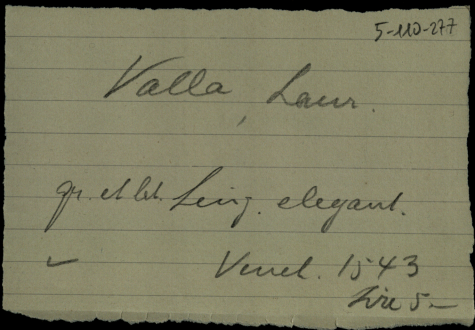 5-110-277
Valla, Laur.
gr. et lat. Ling. elegant.
Venet. 1543
Lire 5.-